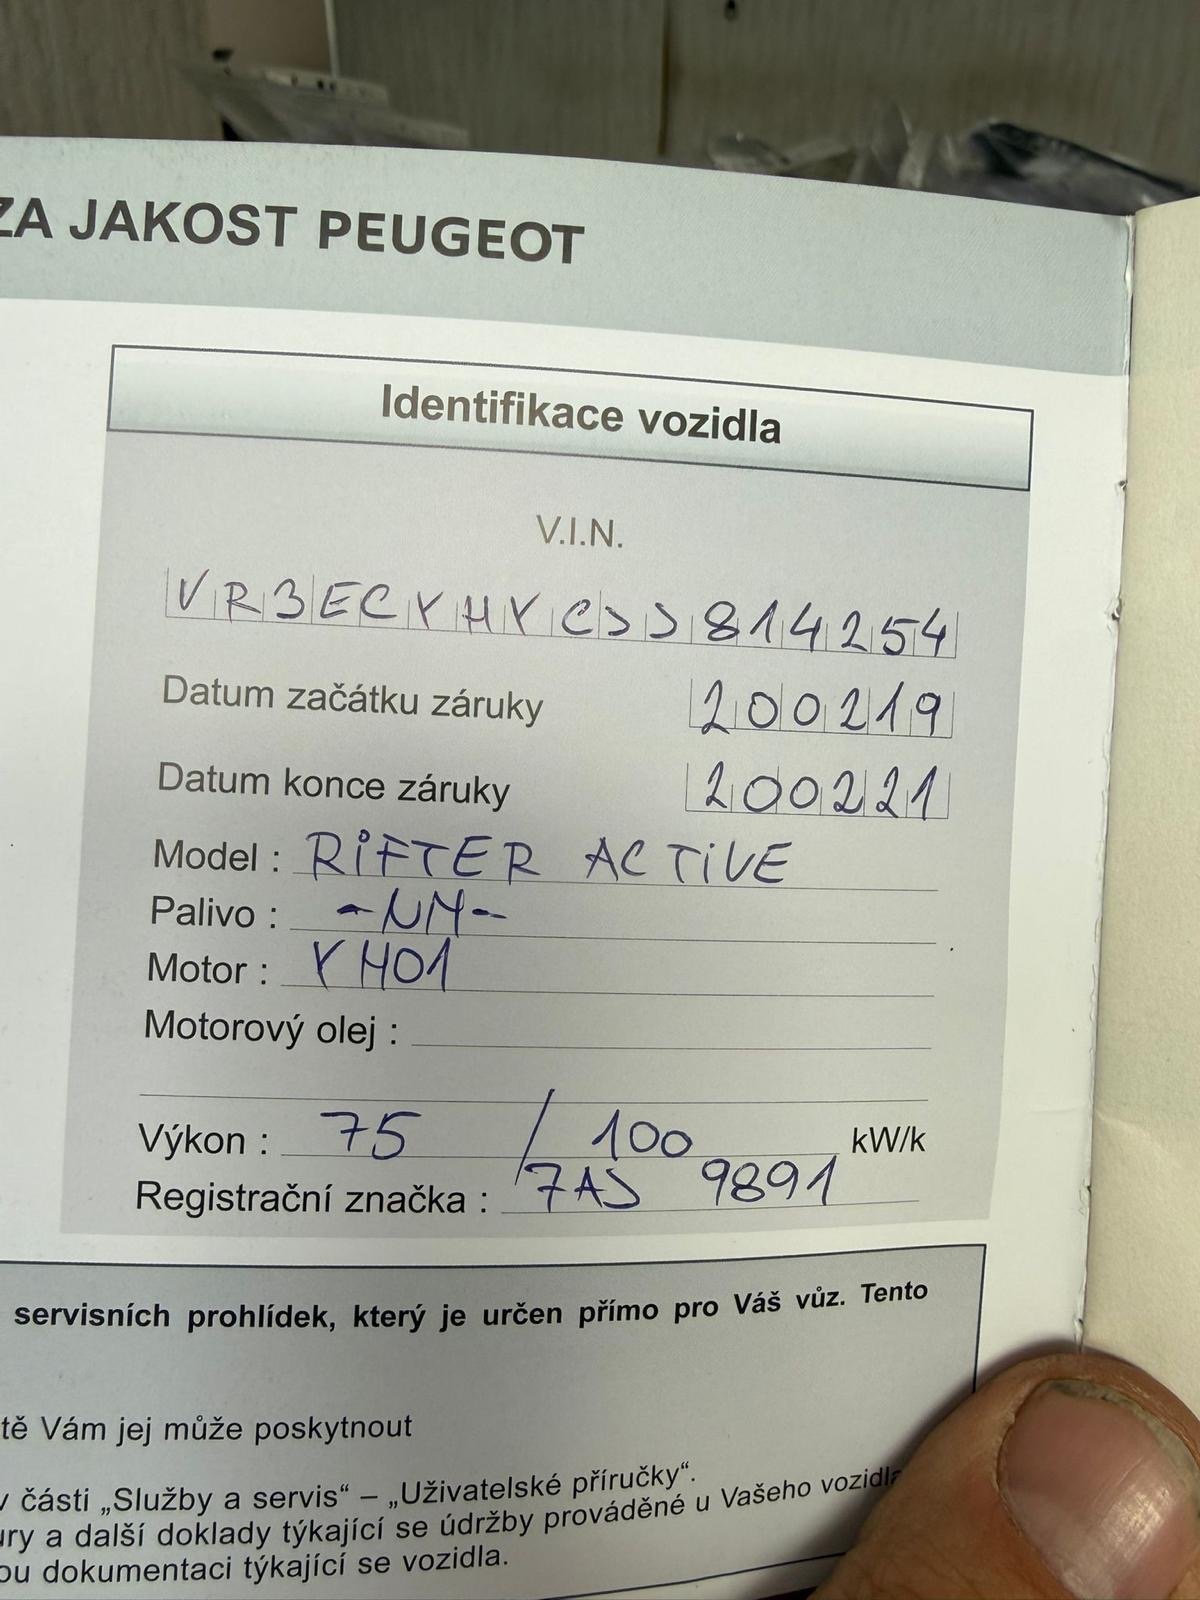 ZA JAKOST PEUGEOT
Identifikace vozidla
V.I.N.
VR3ECYHYCJJ814254
Datum začátku záruky 200219
Datum konce záruky 200221
Model : RiFTER ACTiVE
Palivo : -NM-
Motor : YH01
Motorový olej :
Výkon : 75 / 100 kW/k
Registrační značka : 7AJ 9891
servisních prohlídek, který je určen přímo pro Váš vůz. Tento
tě Vám jej může poskytnout
v části „Služby a servis“ – „Uživatelské příručky“.
ury a další doklady týkající se údržby prováděné u Vašeho vozidla
ou dokumentaci týkající se vozidla.